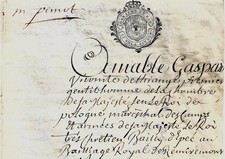 Amable Gaspar
Vicomte de
gentilhomme de la chambre
de sa Majesté feu le Roi de
pologne maréchal des camps
et armées de sa Majesté le Roi
très Chrétien Bailly d'épée au
Bailliage Royal des